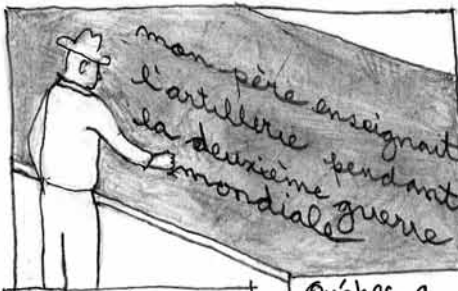 mon père enseignait
l'artillerie pendant
la deuxième guerre
mondiale